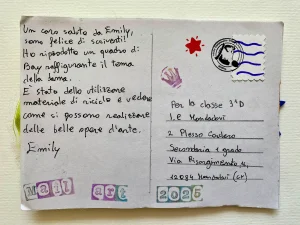 Un caro saluto da Emily,
sono felice di scriverti!
Ho riprodotto un quadro di
Bay raffigurante il tema
della
È stato bello utilizzare
materiale di riciclo e vedere
come si possono realizzare
delle belle opere d'arte.
Emily
Per la classe 3°D
I.C Mondovì
2 Plesso
Secondaria 1 grado
Via Risorgimento
12084 Mondovì (CN)
MAIL ART 2025